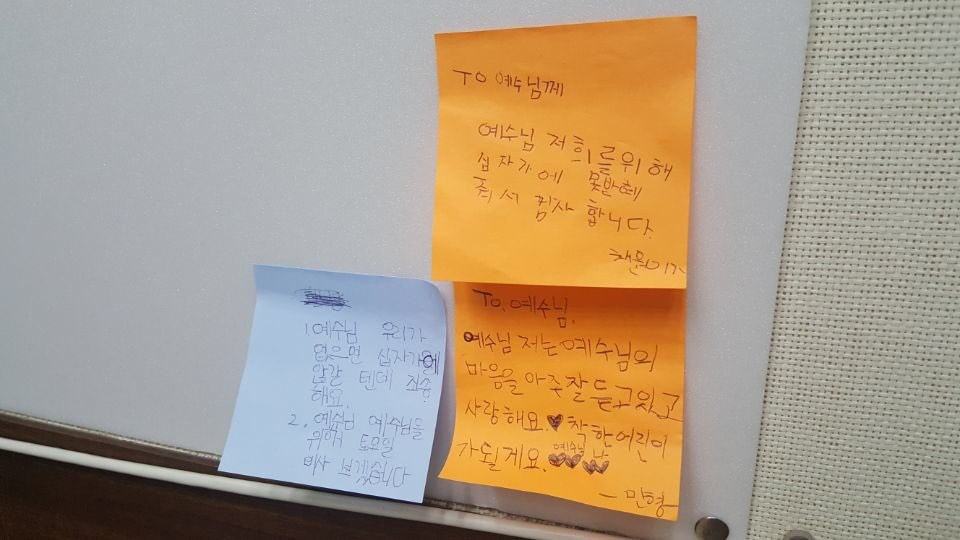 TO 예수님께
예수님 저희를위해
십자가에 못박혀
줘서 감사합니다.
To. 예수님.
예수님 저는 예수님의
마음을 아주잘 듣고있고
사랑해요.♥ 착한어린이
가될게요.
예수님
- 민형 -
1 예수님 우리가
없으면 십자가에
안갈 텐데 죄송
해요
2. 예수님 예수님을
위해 토요일
미사 보겠습니다